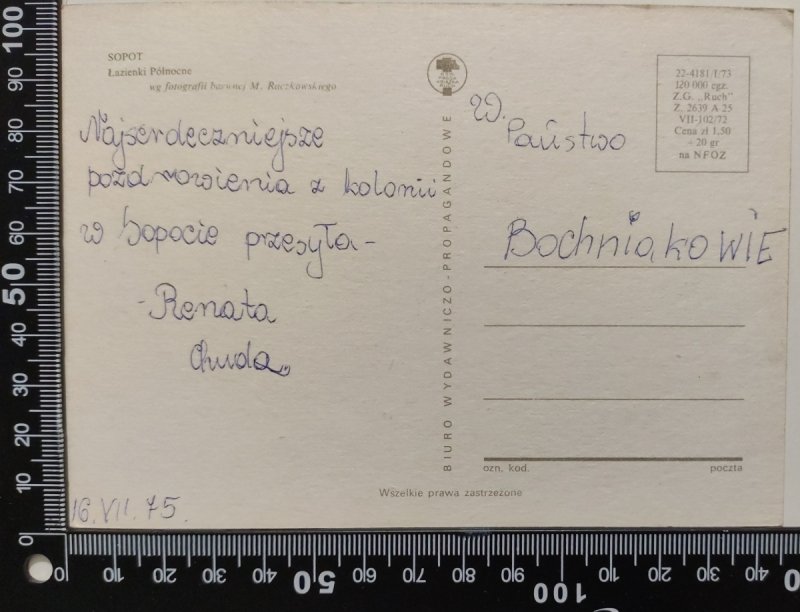 SOPOT
Łazienki Północne
wg fotografii barwnej M. Raczkowskiego
Najserdeczniejsze
pozdrowienia z kolonii
w Sopocie przesyła -
- Renata
Chuda.
16.VII.75.
BIURO WYDAWNICZO-PROPAGANDOWE
22-4181/I/73
120 000 egz.
Z.G. „Ruch"
Z. 2639 A 25
VII-102/72
Cena zł 1,50
+ 20 gr
na NFOZ
W.
Państwo
BochniakoWIE
ozn. kod. poczta
Wszelkie prawa zastrzeżone
100
90
80
70
60
50
40
30
20
10
0
0 10 20 30 40 50 60 70 80 90 100 10 20 30 40